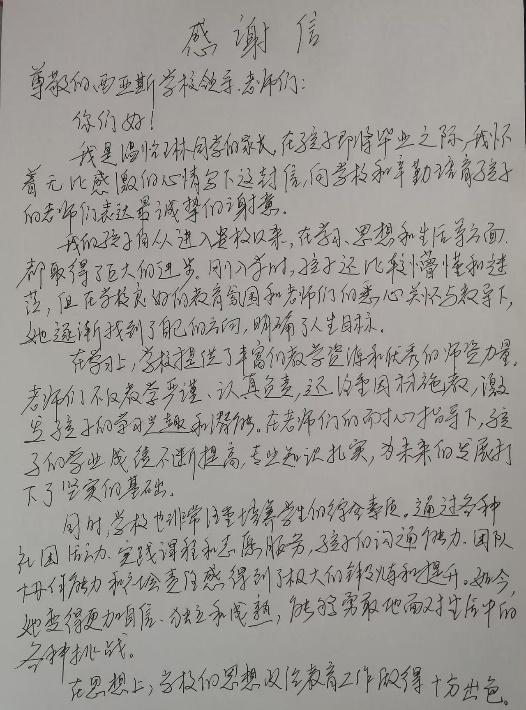 感谢信
尊敬的西亚斯学校领导、老师们：
你们好！
我是温怡琳同学的家长，在孩子即将毕业之际，我怀
着无比感激的心情写下这封信，向学校和辛勤培育孩子
的老师们表达最诚挚的谢意。
我的孩子自从进入贵校以来，在学习、思想和生活等方面
都取得了巨大的进步。刚入学时，孩子还比较懵懂和迷
茫，但在学校良好的教育氛围和老师们的悉心关怀与教导下，
她逐渐找到了自己的方向，明确了人生目标。
在学习上，学校提供了丰富的教学资源和优秀的师资力量。
老师们不仅教学严谨、认真负责，还注重因材施教，激
发孩子们的学习兴趣和潜能。在老师们的耐心指导下，孩
子们的学业成绩不断提高，专业知识扎实，为未来的发展打
下了坚实的基础。
同时，学校也非常注重培养学生们的综合素质，通过各种
社团活动、实践课程和志愿服务，孩子们的沟通能力、团队
协作能力和社会责任感得到了极大的锻炼和提升。如今，
她变得更加自信、独立和成熟，能够勇敢地面对生活中的
各种挑战。
在思想上，学校的思想政治教育工作做得十分出色。